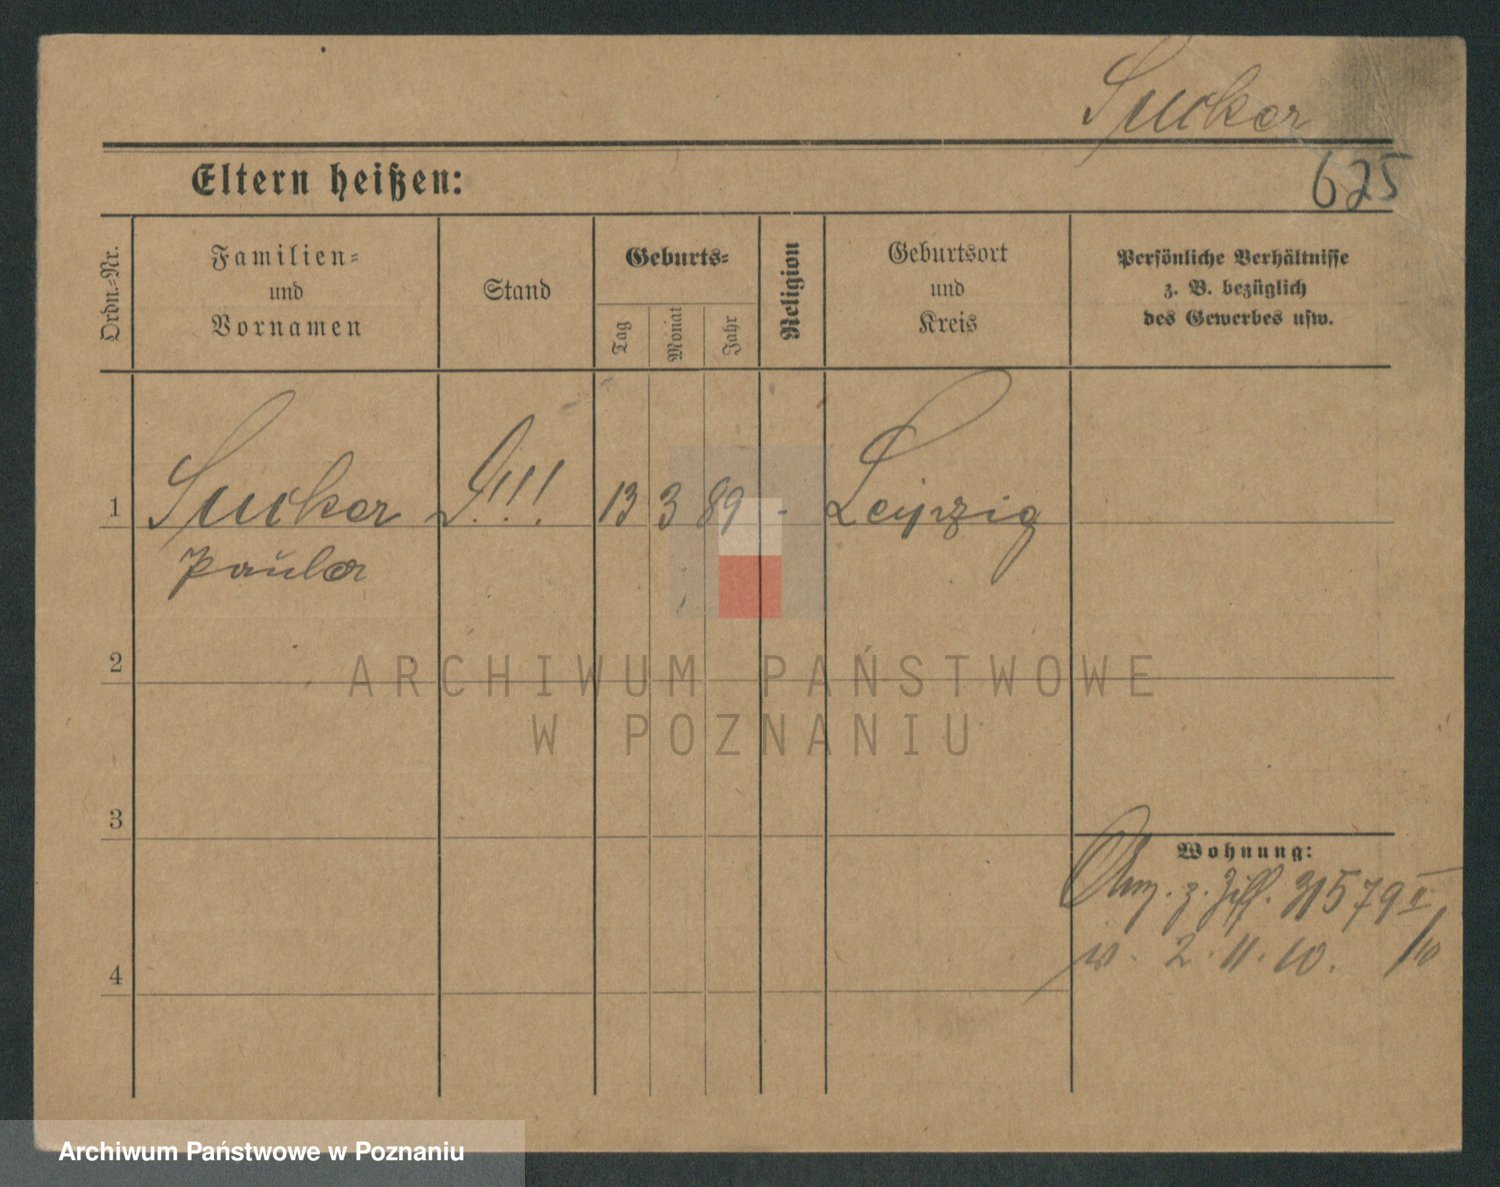 Sucker
Eltern heißen:
625
Ordn.-Nr.
Familien-
und
Vornamen
Stand
Geburts-
Tag
Monat
Jahr
Religion
Geburtsort
und
Kreis
Persönliche Verhältnisse
z. B. bezüglich
des Gewerbes usw.
1
Sucker
!!!
13 3 89 -
Leipzig
Paula
2
ARCHIWUM PAŃSTWOWE
W POZNANIU
3
Wohnung:
z. Ziff. 31579 II
v. 2.11.10.
4
Archiwum Państwowe w Poznaniu